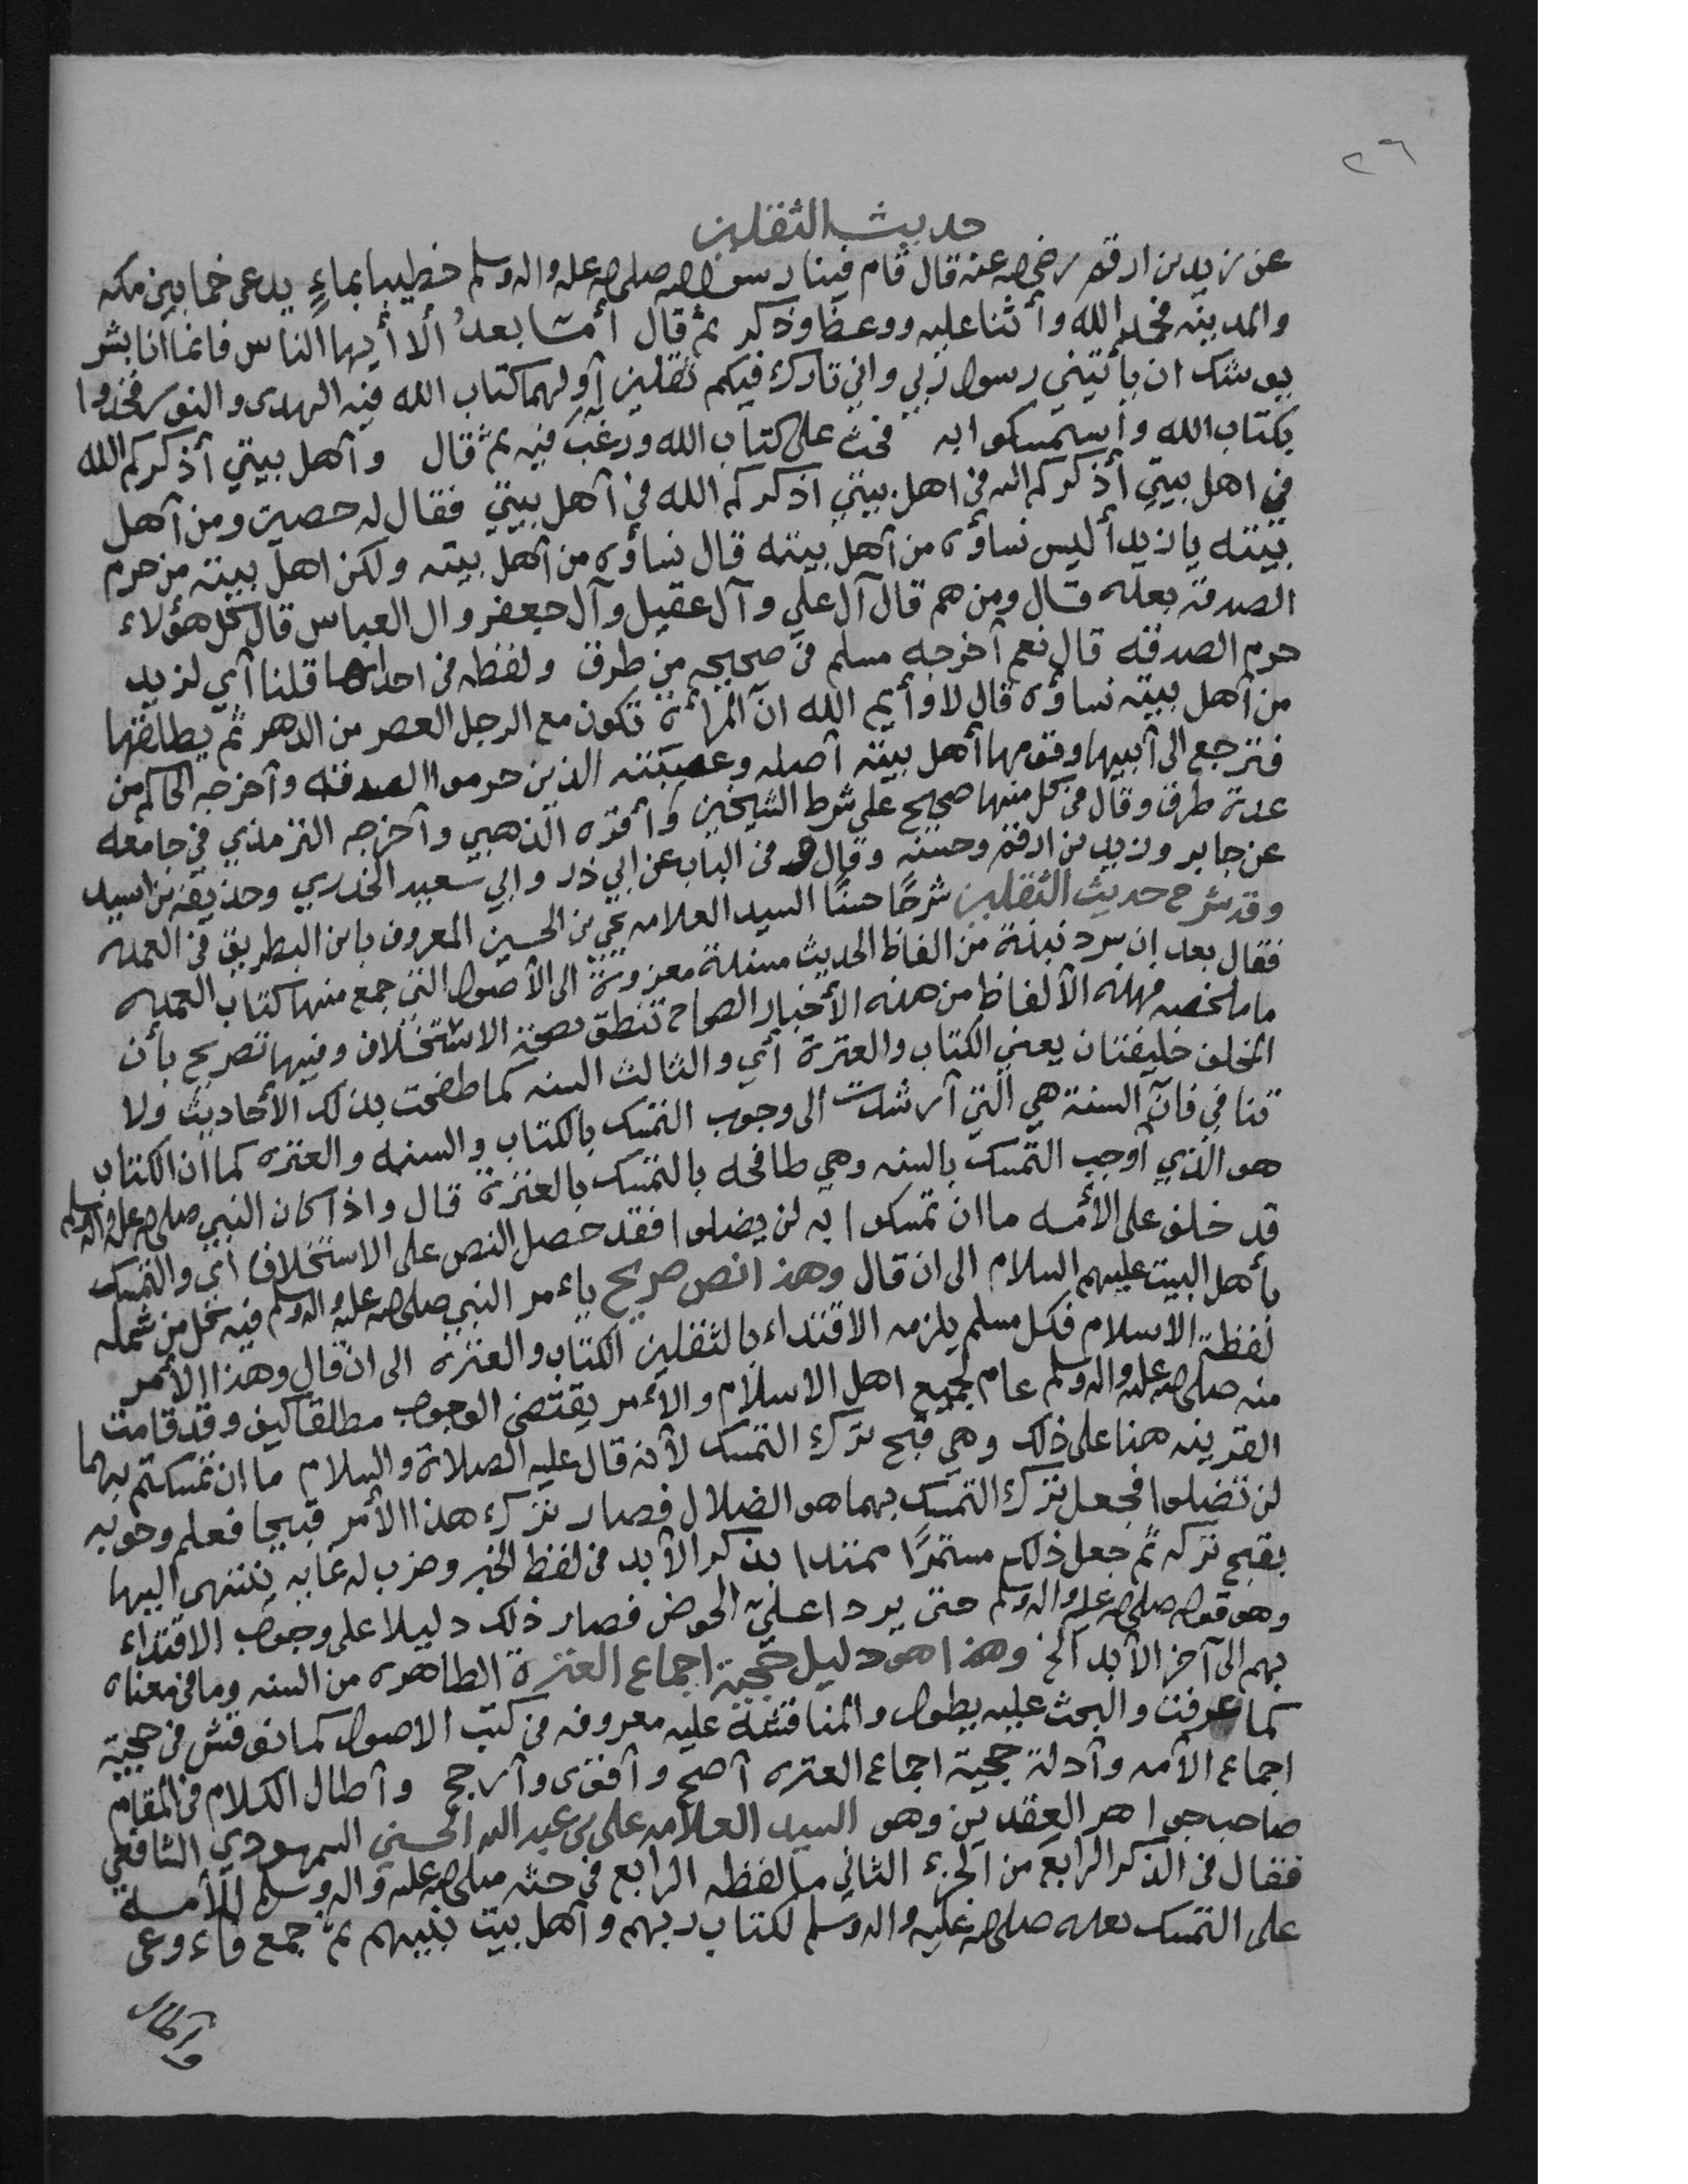 ٢٦
حديث الثقلين
عن زيد بن ارقم رضي الله عنه قال قام فينا رسول الله صلى الله عليه واله وسلم خطيبا بماءٍ يدعى خما بين مكه
والمدينه فحمد الله وأثنا عليه ووعظ وذكر ثم قال أما بعدُ ألا أيها الناس فانما انا بشر
يوشك ان يأتيني رسول ربي واني تارك فيكم ثقلين أولهما كتاب الله فيه الهدى والنور فخذوا
بكتاب الله وأستمسكوا به فحث على كتاب الله ورغب فيه ثم قال وآهل بيتي أذكركم الله
في اهل بيتي أذكركم الله في اهل بيتي اذكركم الله في آهل بيتي فقال له حصين ومن آهل
بيته يا زيد أليس نساؤه من آهل بيته قال نساؤه من آهل بيته ولكن اهل بيته من حرم
الصدقه بعده قال ومن هم قال آل علي وآل عقيل وآل جعفر وال العباس قال كل هؤلاء
حرم الصدقه قال نعم آخرجه مسلم في صحيحه من طرق ولفظه في احداها قلنا آي لزيد
من آهل بيته نساؤه قال لا وأيم الله انّ المرأة تكون مع الرجل العصر من الدهر ثم يطلقها
فترجع الى آبيها وقومها أهل بيته آصله وعصبته الذين حرموا الصدقه وآخرجه الحاكم من
عدة طرق وقال في كل منها صحيح على شرط الشيخين وأقره الذهبي وآخرجه الترمذي في جامعه
عن جابر وزيد بن ارقم وحسنه وقال في الباب عن ابي ذر وابي سعيد الخدري وحذيفه بن اسيد
وقد شرح حديث الثقلين شرحًا حسنًا السيد العلامه يحي بن الحسين المعروف بابن البطريق في العمده
فقال بعد ان سرد نبذة من الفاظ الحديث مسندة معزوة الى الأصول التي جمع منها كتاب العمده
ما ملخصه فهذه الألفاظ من هذه الأخبار الصحاح تنطق بصحة الاستخلاف وفيها تصريح بأن
المخلف خليفتان يعني الكتاب والعترة أي والثالث السنه كما طفحت بذلك الأحاديث ولا
تنافي فانّ السنة هي التي آرشدت الى وجوب التمسك بالكتاب والسنه والعتره كما ان الكتاب
هو الذي أوجب التمسك بالسنه وهي طافحه بالتمسك بالعترة قال واذا كان النبي صلى الله عليه واله وسلم
قد خلف على الأمه ما ان تمسكوا به لن يضلوا فقد حصل النص على الاستخلاف أي والتمسك
بأهل البيت عليهم السلام الى ان قال وهذا نص صريح بامر النبي صلى الله عليه واله وسلم فيه كل من شمله
لفظة الاسلام فكل مسلم يلزمه الاقتداء بالثقلين الكتاب والعتره الى ان قال وهذا الأمر
منه صلى الله عليه واله وسلم عام لجميع اهل الاسلام والأمر يقتضي الوجوب مطلقا كيف وقد قامت
القرينه هنا على ذلك وهي قبح ترك التمسك لأنه قال عليه الصلاة والسلام ما ان تمسكتم بهما
لن تضلوا فجعل ترك التمسك بهما هو الضلال فصار ترك هذا الأمر قبيحا فعلم وجوبه
بقبح تركه ثم جعل ذلك مستمرًا ممتدا بذكر الأبد في لفظ الخبر وضرب له غايه ينتهي اليها
وهو قوله صلى الله عليه واله وسلم حتى يردا علي الحوض فصار ذلك دليلا على وجوب الاقتداء
بهم الى آخر الأبد الخ وهذا هو دليل حجية اجماع العترة الطاهره من السنه وما في معناه
كما عرفت والبحث عليه يطول والمناقشة عليه معروفه في كتب الاصول كما نوقش في حجية
اجماع الآمه وآدلة حجية اجماع العتره آصح وآقوى وآرجح وآطال الكلام في المقام
صاحب جواهر العقدين وهو السيد العلامه علي بن عبد الله الحسني السمهودي الشافعي
فقال في الذكر الرابع من الجزء الثاني ما لفظه الرابع في حثه صلى الله عليه واله وسلم للأمة
على التمسك بعده صلى الله عليه واله وسلم لكتاب ربهم وآهل بيت نبيهم ثم جمع فاءوعى